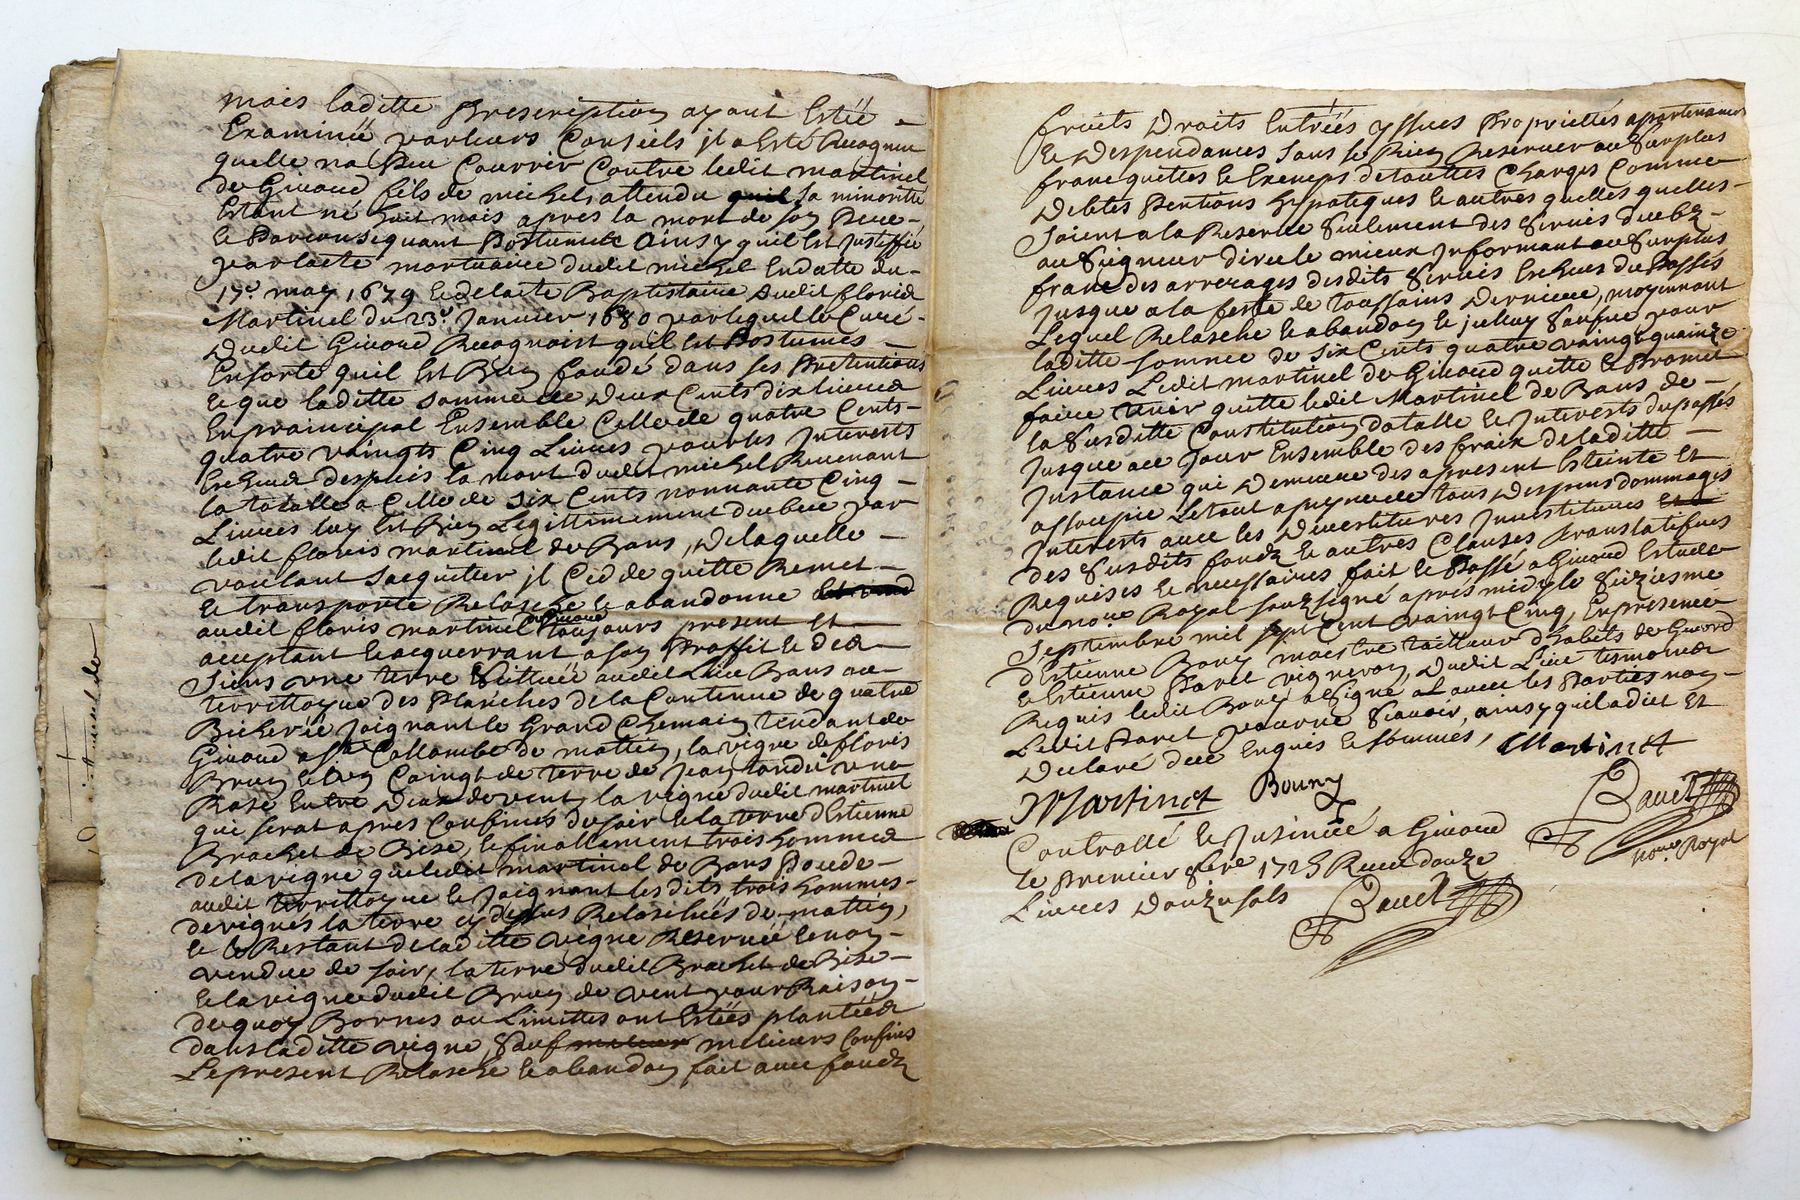 mais laditte prescription ayant Estéé
Examinéé par leurs Conseils jl a Esté Recognu
quelle na Peu Courrir Contre ledit martinet
de Givord fils de michel, attendu quil sa minoritté
Estant né huit mois apres la mort de son Pere
Et Par consequant Postume Ainsy quil Est justiffié
par lacte mortuaire dudit michel En datte du
17e may 1679 Et de lacte Baptistaire dudit floris
Martinet du 23e Janvier 1680 par lequel le Curé
dudit Givord Recognoist quil Est Postumes
En sorte quil Est Bien fondé dans ses Pretentions
Et que laditte somme de Deux Cents dix livres
En prainsipal Ensemble Celle de quatre Cents
quatre vaingts Cinq Livres pour les Interests
Echeus despuis la mort dudit michel Revenant
la totalle a Celle de six Cents nonnante Cinq
Livres luy Est Bien Legittimement dûbue par
ledit floris martinet de Bans, De laquelle
voulant sacquitter jl Cedde quitte Remet
Et transporte Relasche Et abandonne Et vend
audit floris martinet de Givord toujours present Et
acceptant Et acquerrant a son Proffit Et des
siens une terre Scittuéé audit Lieu Bans au
territtoyre des Planches de la Contenue de quatre
Bicheréé joignant le Grand Chemain tendant de
Givord a Ste Collombe de mattin, la vigne de floris
Brun Et un Coingt de terre de Jean une
Rase Entre deux de vent, la vigne dudit martinet
qui serat apres Confinéé du soir Et la terre d'Estienne
Brachet de Bize, Et finallement trois hommes
de la vigne que ledit martinet de Bans Possede
audit territtoyre Et joignant les dits trois hommes
de vignes la terre cy dessus Relaschéé de mattin,
Et Le Restant de laditte vigne Reservéé Et non
vendue de soir, la terre dudit Brachet de Bize
Et la vigne dudit Brun de vent pour Raison
de quoy Bornes ou Limittes ont Estéés plantéés
dans laditte vigne, sauf meilleurs Confins
Le present Relasche Et abandon fait avec fondz
fruits Droits Entréés yssues Propriettés apartenances
Et Despendances sans se Rien Reserver au surplus
franc quittes Et Exemps de touttes Charges Comme
Debtes Pentions hypoteques Et autres quelles quelles
soient a la Reserve seulement des servis deubz
au seigneur direct le mieux Informant au surplus
franc des arrerages desdits servis Echeus du Passés
jusque a la feste de toussains Derniere, moyennant
Lequel Relasche Et abandon Et pour
laditte somme de six Cents quatre vaingt quainze
Livres Ledit martinet de Givord quitte Et Promet
faire tenir quitte ledit Martinet de Bans de
la susditte Constitution dotalle Et Interests du passés
jusque a ce jour Ensemble des fraix de laditte
Instance qui Demeure des apresent Esteinte Et
assoupie Le tout a peyne de tous Despens dommages
Interests avec les Devestitures Investitures Et
des susdits fondz Et autres Clauses translatifves
Requises Et necessaires, fait Et Passé a Givord Estude
du nore Royal soubsigné apres midy le seizïesme
septembre mil sept Cent vaingt Cinq, En presence
d'Estienne Bony maestre tailleur d'habits de Givord
Et Estienne Paret vigneron, dudit Lieu tesmoins
Requis ledit Bony a signé avec les Parties non
Ledit Paret pour ne sçavoir, ainsy quil a dict Et
Declaré de ce Enquis Et sommés,
Martinet
Martinet Bouny
Bauet
nore Royal
Controllé Et Insinué a Givord
le premier 8bre 1725 Receu douze
Livres Douze sols
Bauet